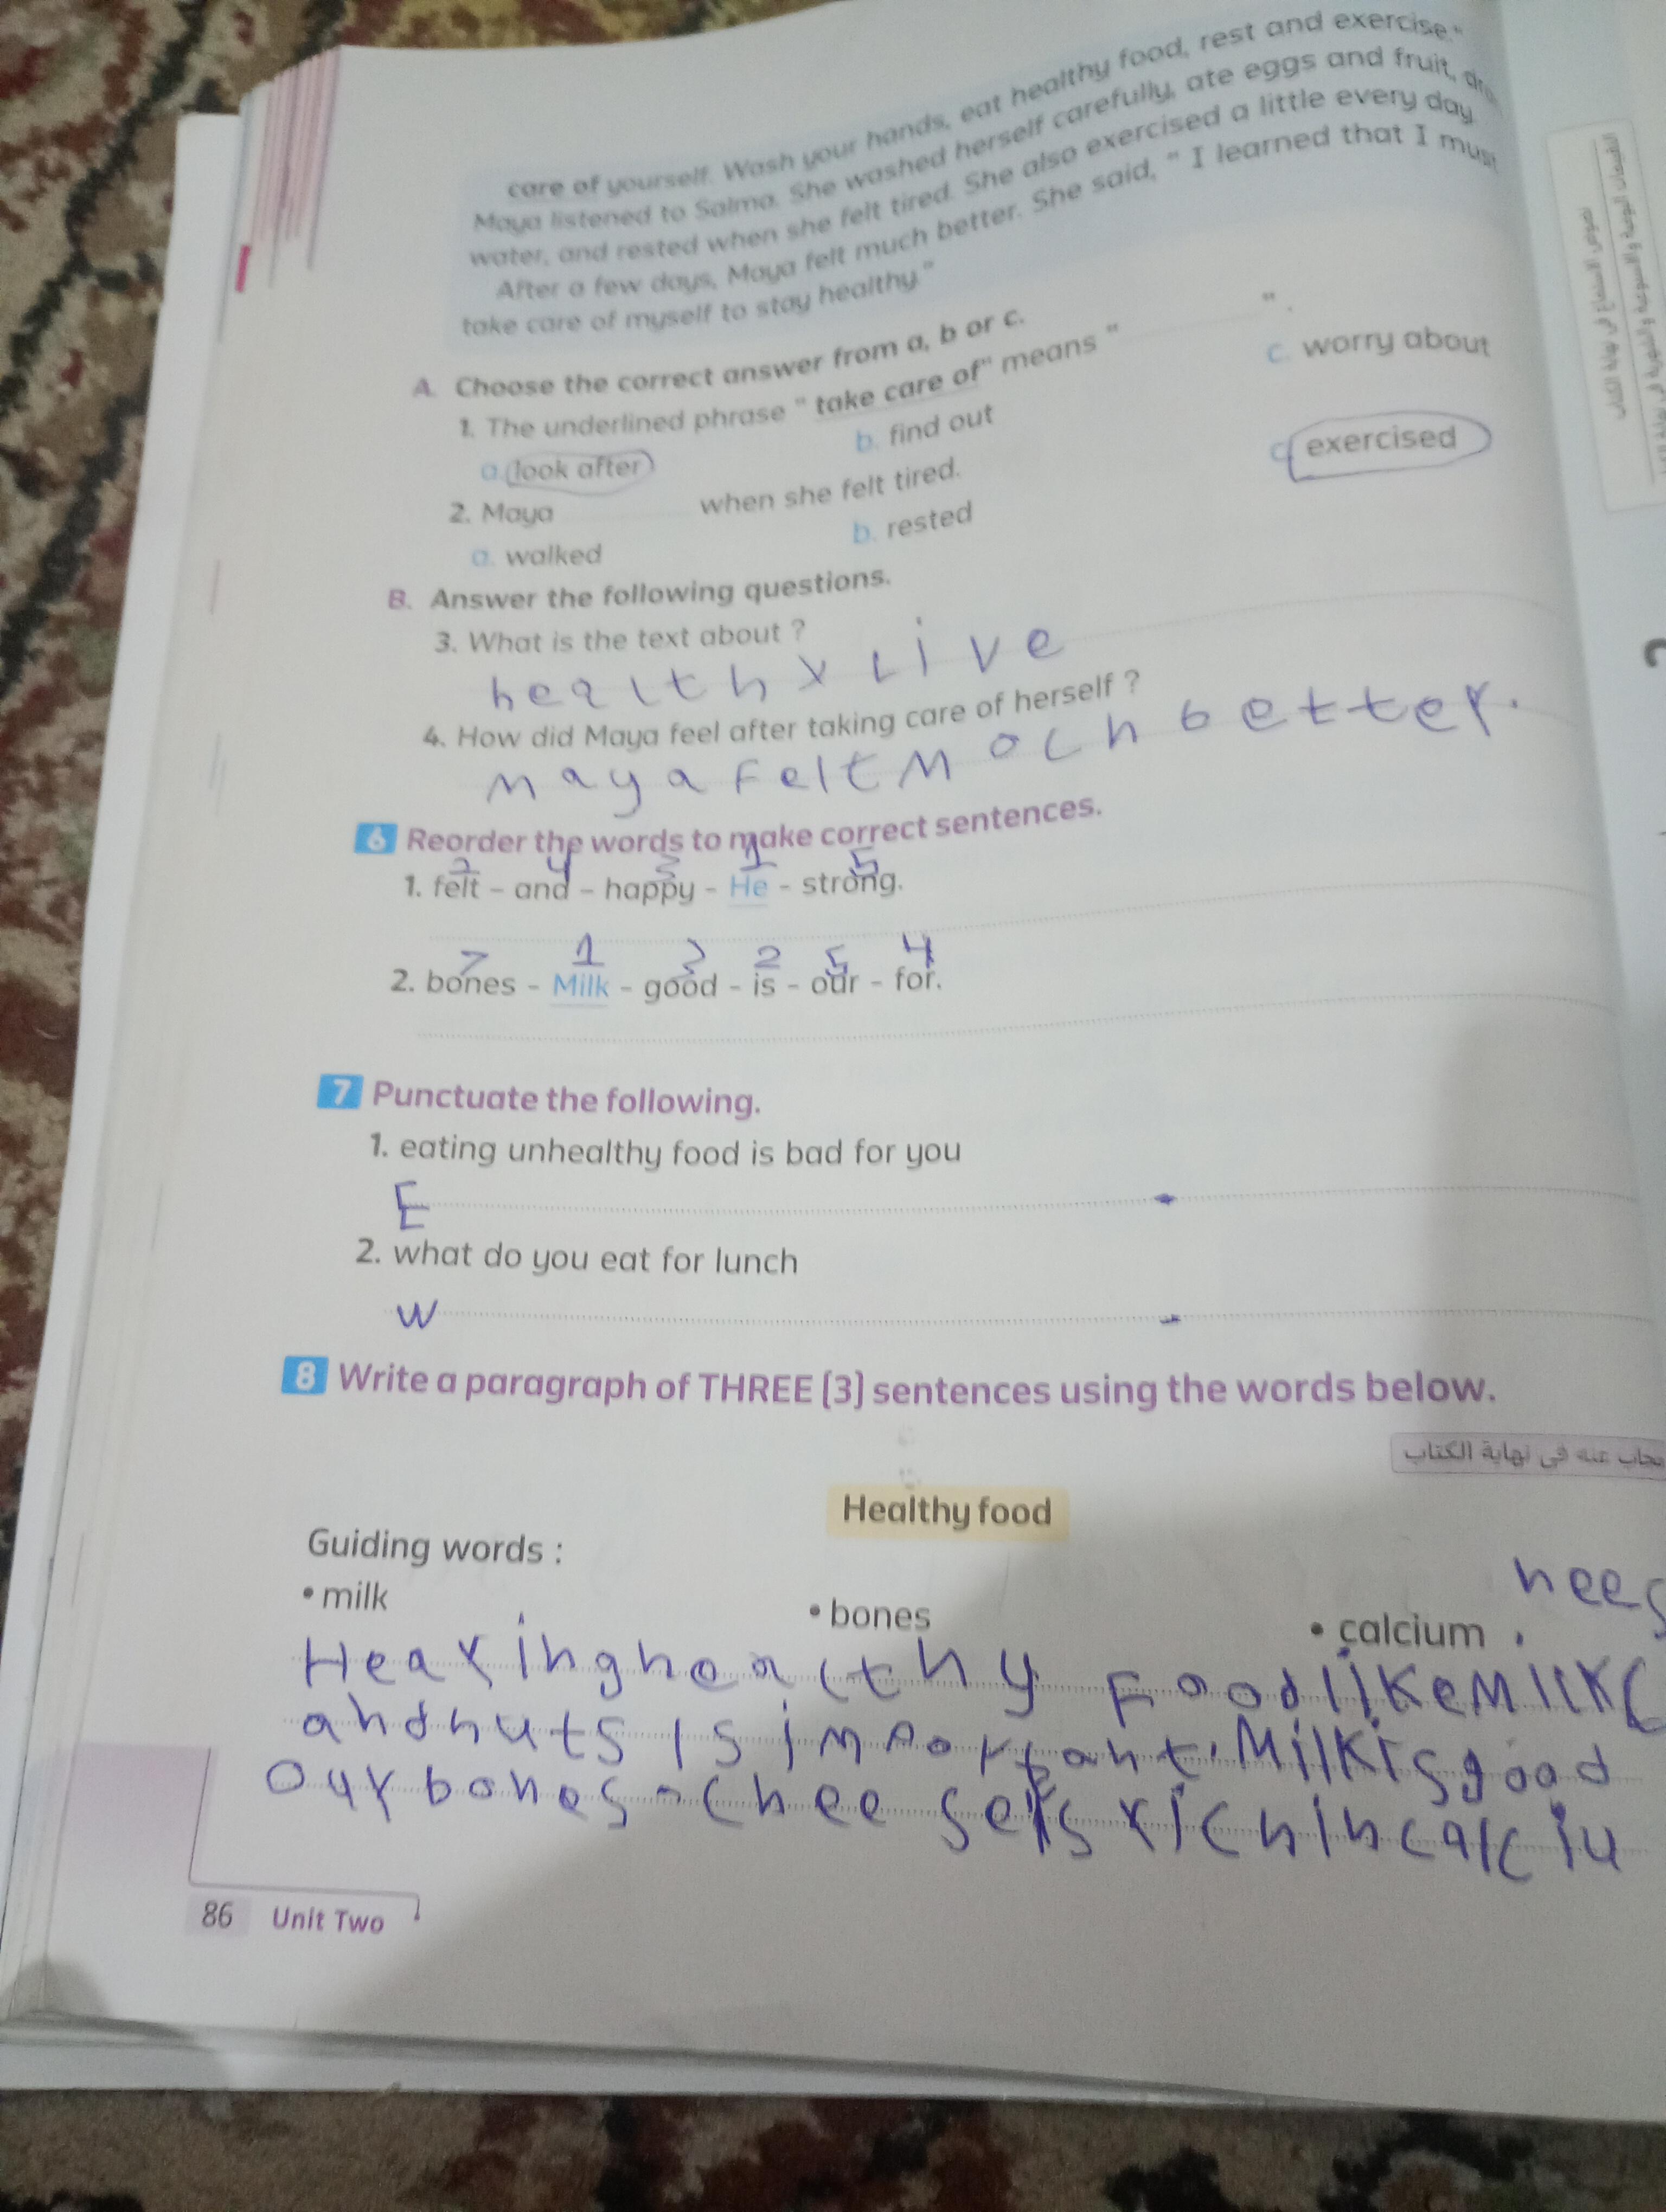 care of yourself. Wash your hands, eat healthy food, rest and exercise."
Maya listened to Salma. She washed herself carefully, ate eggs and fruit,
water, and rested when she felt tired. She also exercised a little every day.
After a few days, Maya felt much better. She said, " I learned that I must
take care of myself to stay healthy."
A. Choose the correct answer from a, b or c.
1. The underlined phrase " take care of" means " ".
a. look after b. find out c. worry about
2. Maya when she felt tired.
a. walked b. rested c. exercised
B. Answer the following questions.
3. What is the text about ?
healthy Live
4. How did Maya feel after taking care of herself ?
Maya Felt Moch better.
6 Reorder the words to make correct sentences.
2 4 3 1 5
1. felt - and - happy - He - strong.
7 1 3 2 5 4
2. bones - Milk - good - is - our - for.
7 Punctuate the following.
1. eating unhealthy food is bad for you
E .
2. what do you eat for lunch
W
8 Write a paragraph of THREE (3) sentences using the words below.
مجاب عنه فى نهاية الكتاب
Healthy food
Guiding words :
• milk • bones • calcium
hees
Hearing healthy Food like Milk C
and nuts is important. Milk is good
Our bones. Chee rich in calciu
86 Unit Two